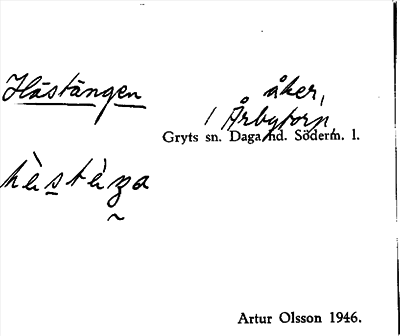 Hästängen
åker,
/ Årbytorp,
Gryts sn. Daga hd. Söderm. l.
hèstèŋa
Artur Olsson 1946.